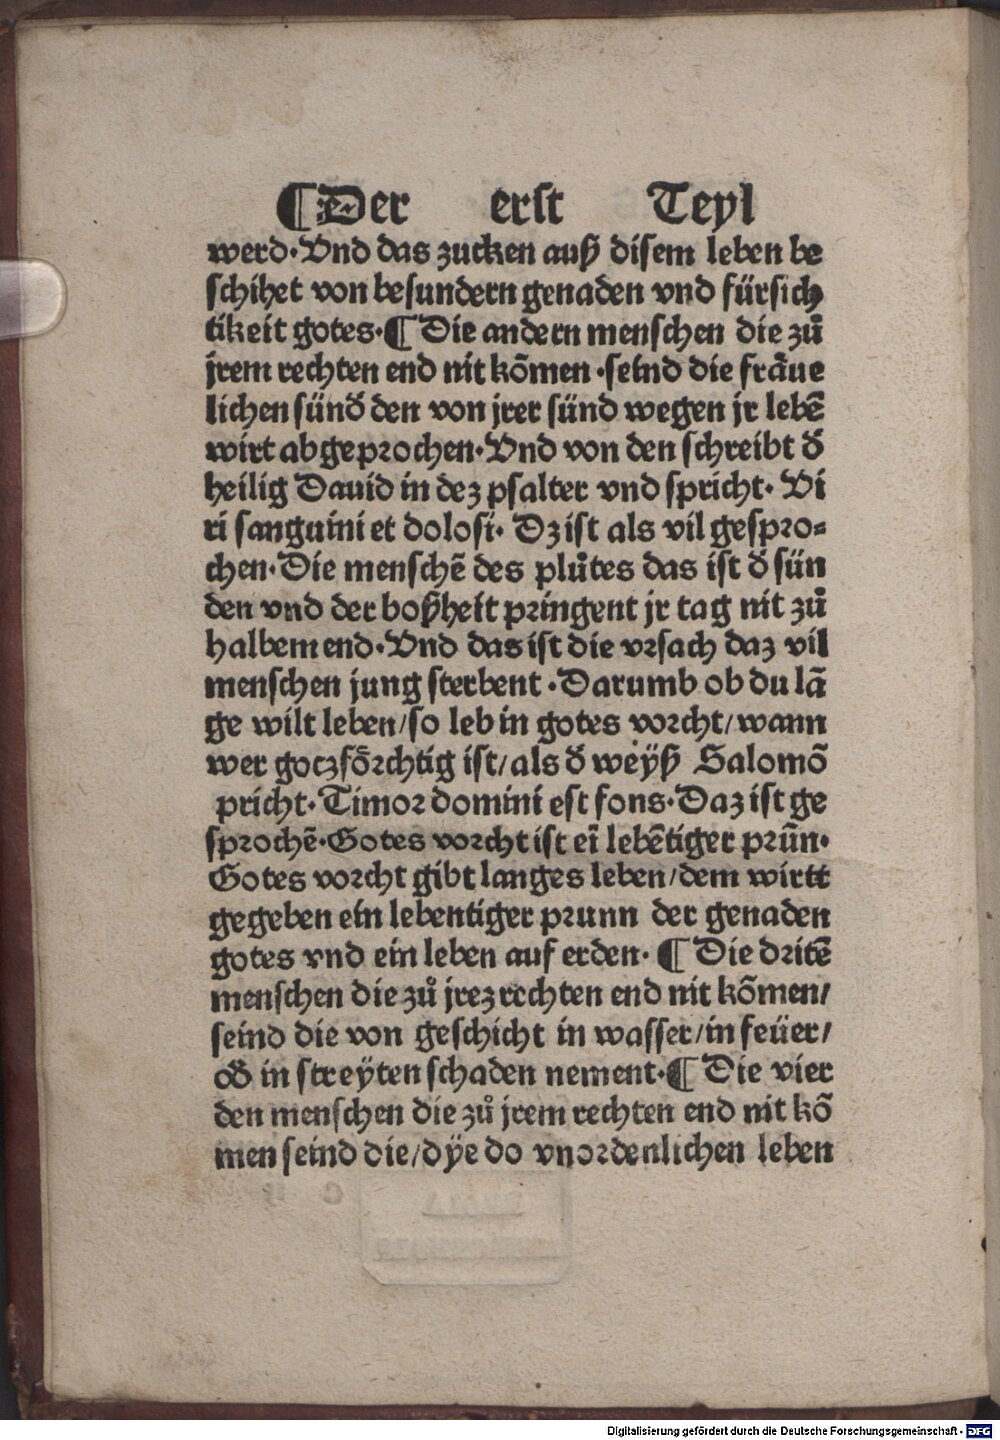 ¶Der erst Teyl
werd·Vnd das zucken auß disem leben be
schihet von besundern genaden vnd fürsich
tikeit gotes·¶Die andern menschen die zů
jrem rechten end nit kõmen·seind die frãue
lichen sünđ den von jrer sünd wegen jr lebẽ
wirt abgeprochen·Vnd von den schreibt đ
heilig Dauid in dez psalter vnd spricht· Vi
ri sanguini et dolosi· Dz ist als vil gespro⸗
chen·Die menschẽ des plůtes das ist đ sün
den vnd der boßheit pringent jr tag nit zů
halbem end·Vnd das ist die vrsach daz vil
menschen jung sterbent·Darumb ob du lã
ge wilt leben/so leb in gotes vorcht/wann
wer goczfõrchtig ist/als đ weÿß Salomõ
pricht·Timor domini est fons·Daz ist ge
sprochẽ·Gotes vorcht ist eĩ lebẽtiger prũn·
Gotes vorcht gibt langes leben/dem wirtt
gegeben ein lebentiger prunn der genaden
gotes vnd ein leben auf erden· ¶Die dritẽ
menschen die zů jrez rechten end nit kõmen/
seind die von geschicht in wasser/in feüer/
ođ in streÿten schaden nement·¶Die vier
den menschen die zů jrem rechten end nit kõ
men seind die/dÿe do vnordenlichen leben
Digitalisierung gefördert durch die Deutsche Forschungsgemeinschaft - DFG